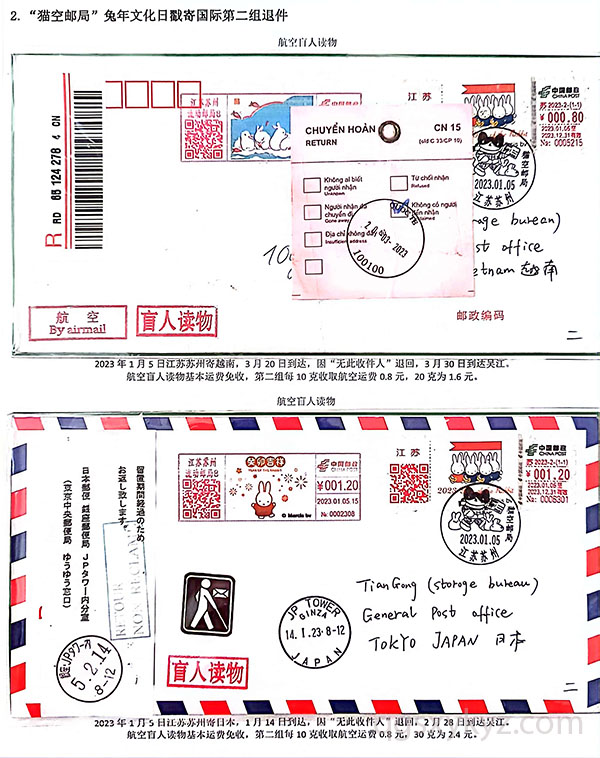 2. “猫空邮局”兔年文化日戳寄国际第二组退件
航空盲人读物
江苏苏州
流动邮局8
江 苏
中国邮政
CHINA POST
苏 2023-2-(1-1)
¥ 000.80
2023.01.05
2023.12.31有效
№: 0005215
RD 68 124 278 4 CN
R
CHUYỂN HOÀN
RETURN
CN 15
(old C 33/CP 10)
Không ai biết
người nhận
Unknown
Từ chối nhận
Refused
Người nhận đã
chuyển đi
Gone away
Không có người
đến nhận
Địa chỉ không đầy
Insufficient address
03-2023
100100
猫空邮局
2023.01.05
江苏苏州
(storage bureau)
Post office
Vietnam 越南
航 空
By airmail
盲人读物
邮政编码
二
2023 年 1 月 5 日江苏苏州寄越南，3 月 20 日到达，因“无此收件人”退回，3 月 30 日到达吴江。
航空盲人读物基本运费免收，第二组每 10 克收取航空运费 0.8 元，20 克为 1.6 元。
航空盲人读物
江苏苏州
流动邮局8
癸卯吉祥
中国邮政
CHINA POST
¥ 001.20
2023.01.05.15
№ 0002308
© Mercis bv
江 苏
中国邮政
CHINA POST
苏 2023-2-(1-1)
¥ 001.20
2023.01.05
2023.12.31有效
№: 0006301
猫空邮局
2023.01.05
江苏苏州
留置期間経過のため
お返し致します。
日本郵便 銀座郵便局 JPタワー内分室
(東京中央郵便局 ゆうゆう窓口)
RETOUR
NON RECLAMÉ
5.2.14
8-12
JP TOWER
GINZA
14.1.23.8-12
JAPAN
TianGong (storage bureau)
General Post office
TOKYO JAPAN 日本
盲人读物
二
2023 年 1 月 5 日江苏苏州寄日本，1 月 14 日到达，因“无此收件人”退回，2 月 28 日到达吴江。
航空盲人读物基本运费免收，第二组每 10 克收取航空运费 0.8 元，30 克为 2.4 元。